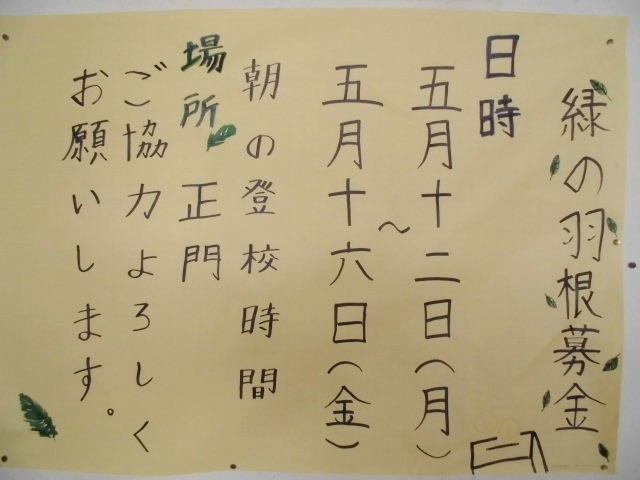 緑の羽根募金
日時
五月十二日(月)
〜
五月十六日(金)
朝の登校時間
場所 正門
ご協力よろしく
お願いします。